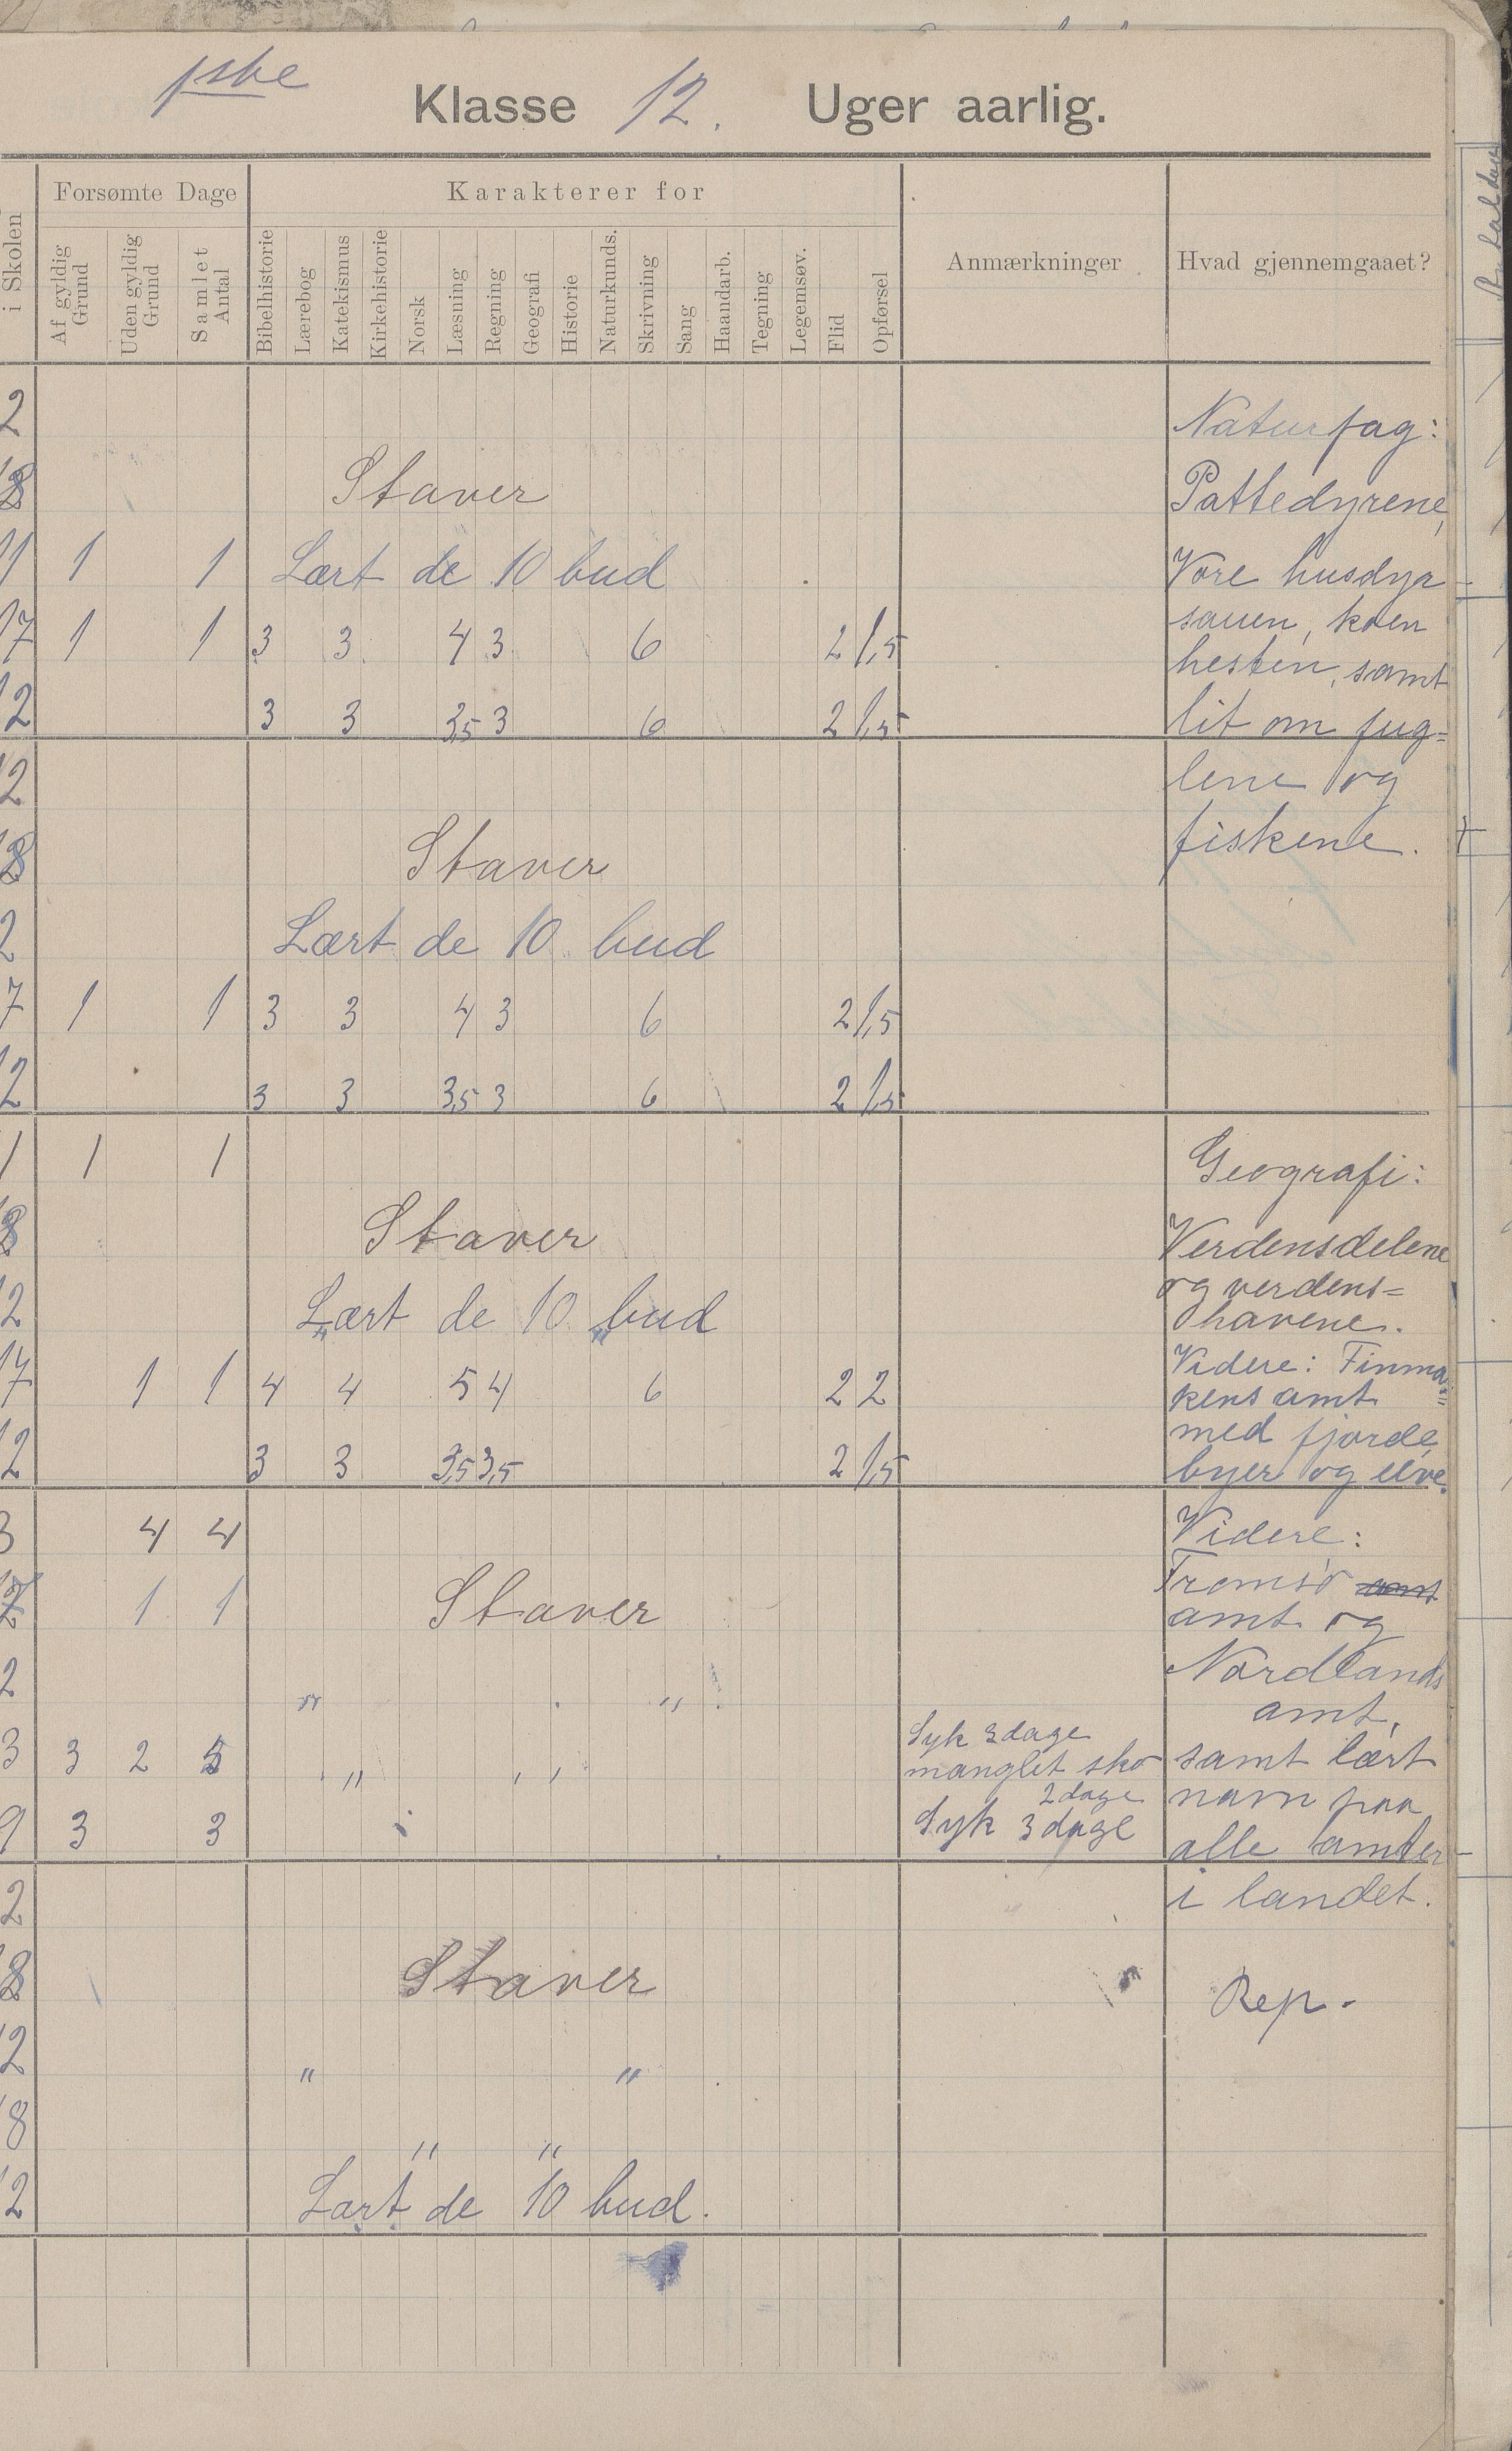 1ste Klasse 12. Uger aarlig.
i Skolen
Forsømte Dage
Karakterer for
Anmærkninger
Hvad gjennemgaaet?
Af gyldig Grund
Uden gyldig Grund
Samlet Antal
Bibelhistorie
Lærebog
Katekismus
Kirkehistorie
Norsk
Læsning
Regning
Geografi
Historie
Naturkunds.
Skrivning
Sang
Haandarb.
Tegning
Legemsøv.
Flid
Opførsel
2 Naturfag:
Staver Pattedyrene,
11 1 1 Lært de 10 bud Vore husdyr
sauen, koen
17 1 1 3 3 4 3 6 2 1,5
hesten, samt
12 3 3 3,5 3 6 2 1,5 lit om fug=
2 lene og
Staver fiskene.
2 Lært de 10 bud
7 1 1 3 3 4 3 6 2 1,5
12 3 3 3,5 3 6 2 1,5
1 1 1 Geografi:
Staver Verdensdelene
og verdens=
12 Lært de 10 bud havene.
Videre: Finma
17 1 1 4 4 5 4 6 2 2 kens amt
med fjorde,
12 3 3 3,5 3,5 2 1,5 byer og elve.
3 4 4 Videre:
1 1 Staver Tromsø amt
amt og
2 " " Nordlands
amt,
3 3 2 5 " " Syk 3 dage samt lært
manglet sko
2 dage navn paa
9 3 3 Syk 3 dage alle amter
2 i landet.
Staver Rep.
12 " "
18 " "
12 Lært de 10 bud.